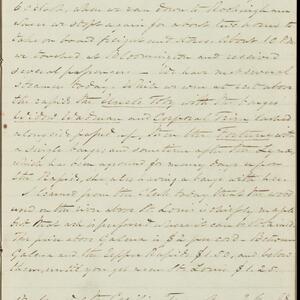 6 o'clock, when we ran down to Rockingham
where we stopt again for about two hours to
take on board freight and stores. About 10 P.M.
we touched at Bloomington and received
several passengers. We have met several
steamers to day, while we were at rest above
the rapids the Uncle Toby with two barges
Widow Wadman and Corporal Trim lashed
alongside passed up,
a single barge, and some time after the
which has been aground for many days upon
the Rapids, she also having a barge with her.
I learned from the Clerk to day that the wood
used on the river above St. Louis is chiefly maple
but that ash is preferred where it can be obtained.
The price above Galena is $2 per cord - Between
Galena and the Upper Rapids $1.50, and below
them, until you get near St. Louis $1.25.